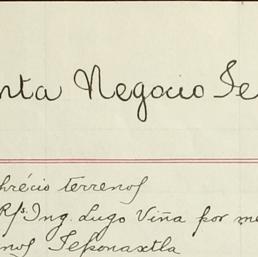 nta Negocio Te
hrécio terrenos
R/s. Ing. Lugo Viña por me
nos Teponaxtla